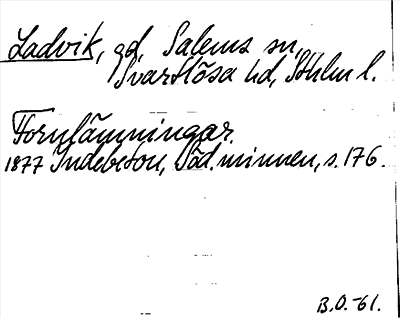 Ladvik, gd, Salems sn,
Svartlösa hd, Sthlm l.
Fornlämningar.
1877 Indebetou, Söd. minnen, s. 176.
B.O. -61.